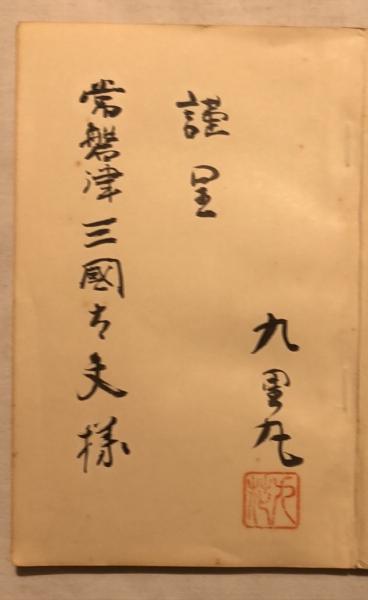 謹呈
常磐津三國太夫様
九里丸